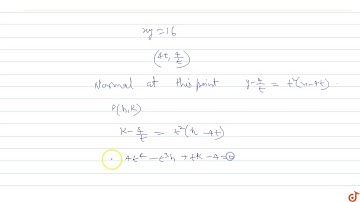 xy = 16
(4t, 4/t)
Normal at this point y - 4/t = t²(x - 4t).
P(h, k)
k - 4/t = t²(h - 4t)
4t⁴ - t³h + tk - 4 = 0